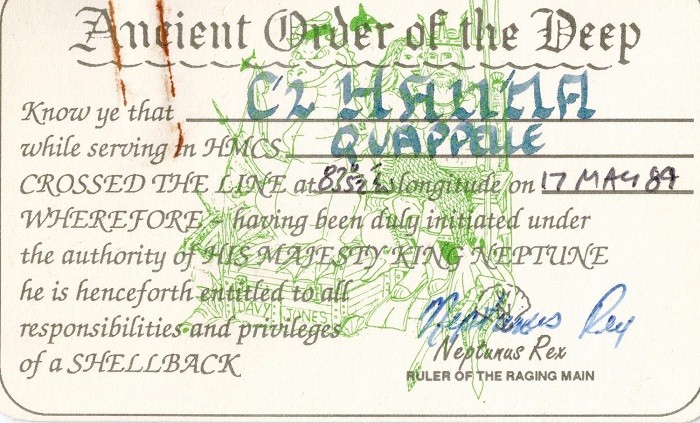 Ancient Order of the Deep
Know ye that C2 HANNA
while serving in HMCS QUAPPELLE
CROSSED THE LINE at longitude on 17 MAY 89
WHEREFORE - having been duly initiated under
the authority of HIS MAJESTY KING NEPTUNE
he is henceforth entitled to all
DAVY JONES
responsibilities and privileges
Neptunus Rex
Neptunus Rex
of a SHELLBACK
RULER OF THE RAGING MAIN